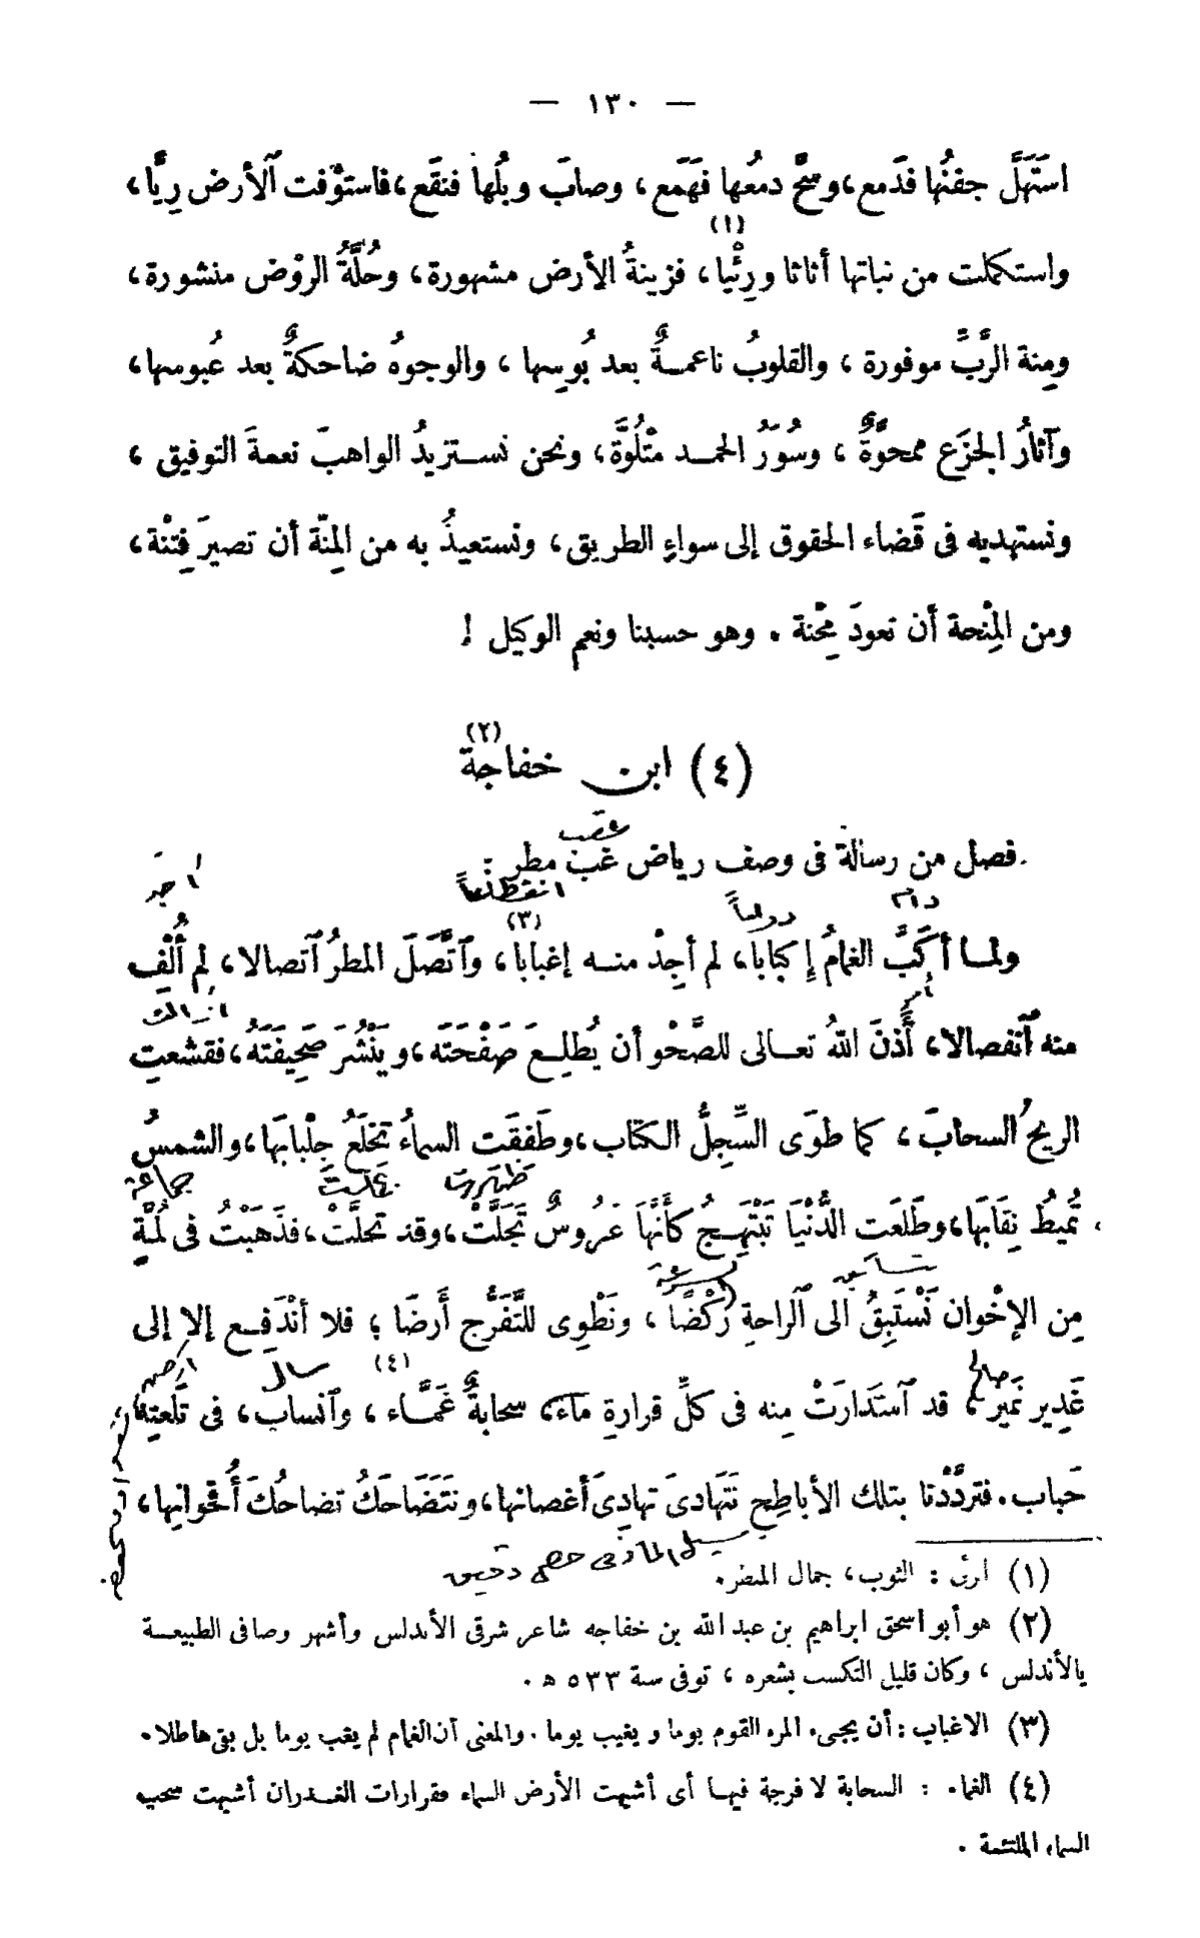 — ١٣٠ —
استَهَلَّ جفنُها فدَمع، وسحَّ دمعُها فهَمَع، وصابَ وبْلُها فنقَع، فاستوْفت ٱلأرض رِيًّا،
واستكملت من نباتها أثاثا ورِئْيا (١)، فزينةُ الأرض مشهورة، وحُلَّةُ الروْض منشورة،
ومِنة الرَّبِّ موفورة، والقلوبُ ناعمةٌ بعد بُوسِها، والوجوهُ ضاحكةٌ بعد عُبوسها،
وآثارُ الجزَع ممحوَّةٌ، وسُوَرُ الحمد متْلُوَّة، ونحن نستزيدُ الواهبَ نعمةَ التوفيق،
ونستهديه فى قَضاء الحقوق إلى سواءِ الطريق، ونستعيذُ به من المِنّة أن تصيرَ فِتنْة،
ومن المِنْحة أن تعودَ مِحْنة. وهو حسبنا ونعم الوكيل !
(٤) ابن خفاجة (٢)
عقب
فصل من رسالة فى وصف رياض غب مطر
انقطاعاً
دام
دواماً
اجد
ولما أكَبَّ الغامُ إكبابا، لم أجِدْ منه إغبابا (٣)، وٱتَّصَلَ المطرُ ٱتصالا، لم أُلْفِ
ازالت
منه ٱنفصالا، أَذِنَ اللهُ تعالى للصَّحْو أن يُطلِعَ صَفْحَتَه، ويَنْشُرَ صَحِيفَتَهُ، فقشعتِ
الريحُ السحابَ، كما طوَى السِّجِلُّ الكتاب، وطَفِقَت السماءُ تخلَعُ جِلْبابَها، والشمسُ
ظهرت
جماعة
تُميطُ نِقَابَها، وطَلَعَت الدُّنْيَا تَبْتَهِجُ كأنَّهَا عَرُوسٌ تَجَلَّتْ، وقد تحلَّتْ، فذَهَبْتُ فى لُمَّةٍ
مِن الإخْوان نَسْتَبِقُ الى ٱلراحةِ رَكْضًا، ونَطْوِى للتَّفَرُّج أَرضًا؛ فلا أنْدَفِع إلا إلى
صالح
سال
غَدِير نَمير، قد ٱستَدَارَتْ مِنه فى كلِّ قرارةِ مآء، سحابةٌ غَمَّاء (٤)، وٱنساب، فى تَلْعتِه
حَباب. فتردَّدْنا بتلك الأباطِح نَتَهَادى تهادِىَ أغصانها، ونتَضَاحَكُ تضاحُكَ أُقحوانِها،
دقيق
(١) الرئى : الثوب، جمال المنظر.
(٢) هو أبو اسحق ابراهيم بن عبد الله بن خفاجه شاعر شرقى الأندلس وأشهر وصافى الطبيعة
بالأندلس، وكان قليل التكسب بشعره، توفى سنة ٥٣٣ ه.
(٣) الاغباب : أن يجىء المرء القوم يوما ويغيب يوما. والمعنى أن الغام لم يغب يوما بل بقى هاطلا.
(٤) الغماء : السحابة لا فرجة فيها أى أشبهت الأرض السماء وقرارات الغدران أشبهت سحب
السماء الملتئمة.